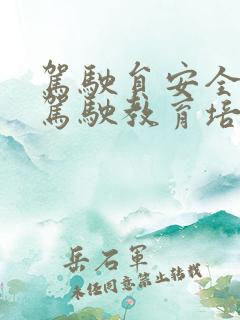 駕駛員安全
駕駛教育培
岳石軍
未經同意禁止轉載